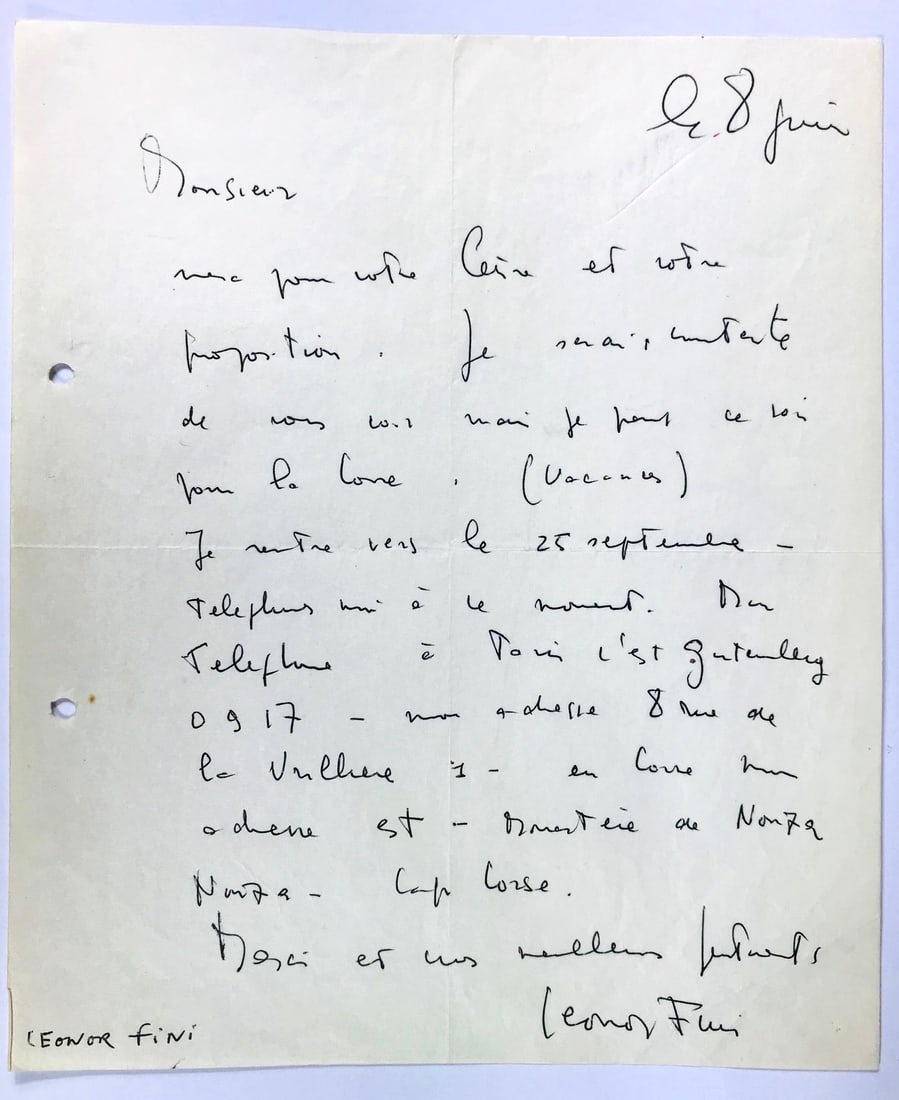 le 8 juin
Monsieur
merci pour votre lettre et votre
proposition. Je serais contente
de vous voir mais je pars ce soir
pour la Corse. (Vacances)
Je rentre vers le 25 septembre –
Telephonez moi à ce moment. Mon
Telephone à Paris c'est Gutenberg
0917 – mon adresse 8 rue de
la Vrilliere 1 – en Corse mon
adresse est – Monastère de Nonza
Nonza – Cap Corse.
Merci et mes meilleurs sentiments
Leonor Fini
LEONOR FINI